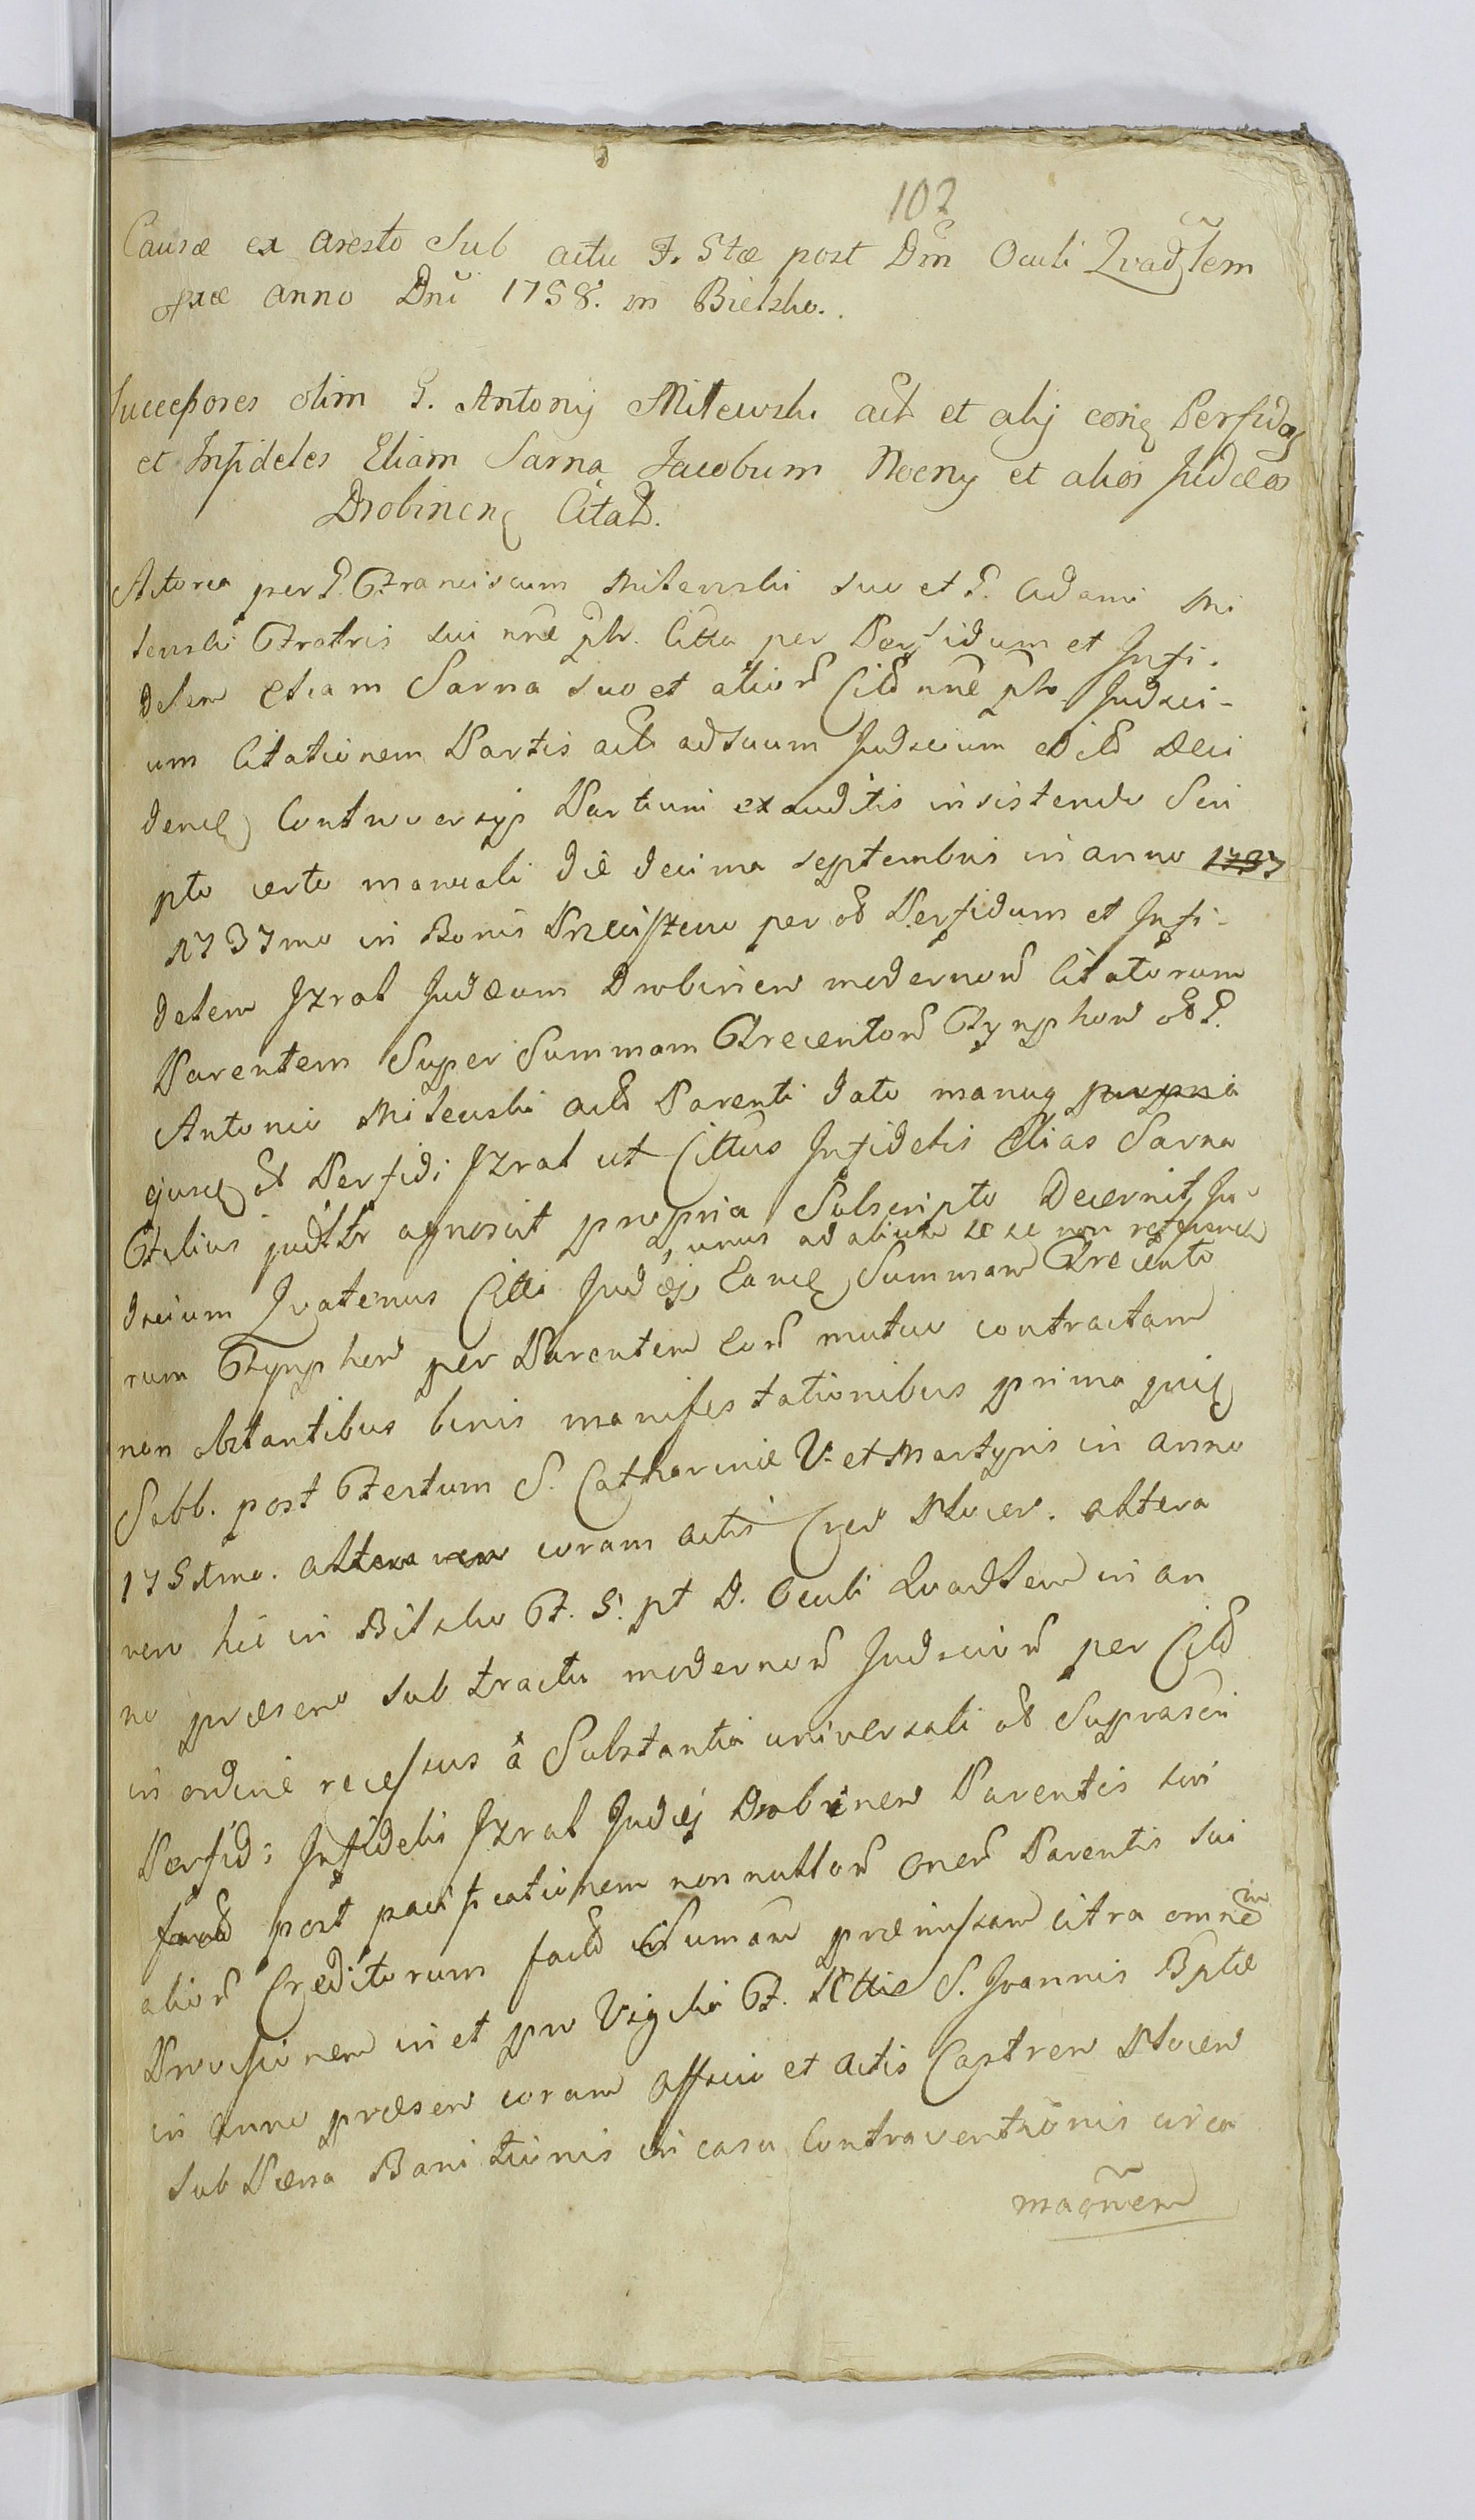 102
Causæ ex aresto Sub actu F. 5tæ post Dm̃ Oculi Qvadglem
quæ anno Dnĩ 1758. in Bielsko.
Successores olim G. Antonij Milewski act et alij conq Perfidos
et Infideles Eliam Sarna Jacobum Nocny et alios Judæos
Drobinenq Citat.
Actorea per G. Franciscum Milewski suo et G. Adami Mi
lewski Fratris sui nñe plr. Citta per Perfidum et Infi-
delem Eliam Sarna suo et alior Cit nñe plr Judici-
um Citationem Partis act ad suum Judicium et Deci
denq Controversijs Partium exauditis insistendo Scri
pto certo manuali die decima septembris in anno 1737
1737mo in Bonis per ol Perfidum et Infi-
delem Izral Judæum Drobinen modernor Citatorum
Parentem Super Summam Trecentor Tynphor ol G.
Antonio Milewski act Parenti dato manuq propria
ejusq ol Perfidi Izral ut Cittus Infidelis Elias Sarna
Filius judltr agnoscit propria Subscripto Decernit, Ju-
, unus ad alium se se non referendo
dicium Qvatenus Citti Judæj Eanq Summam Trecento
rum Tynphor per Parentem Eor mutuo contractam
non obstantibus binis manifestationibus prima quiq
Sabb. post Festum S. Catharinæ V. et Martyris in anno
175 mo. altera vero coram actis Cren Plocen. altera
vero hic in Bilsko F. 5. pt D. Oculi Qvadlem in an
no præsen sub tractu modernor Judicior per Cit
in ordine recessus à Substantia universali ol Suprascri
Perfidi Infidelis Izral Judæj Drobinen Parentis sui
fact post pacificationem nonnullor oner Parentis sui
alior Creditorum fact Sumam præmissam citra omnem
Provisionem in et pro Vigilia F. Nttis S. Joannis Bptæ
in anno præsen coram officio et actis Castren Plocen
sub Pæna Banitionis in casu Contraventionis circa